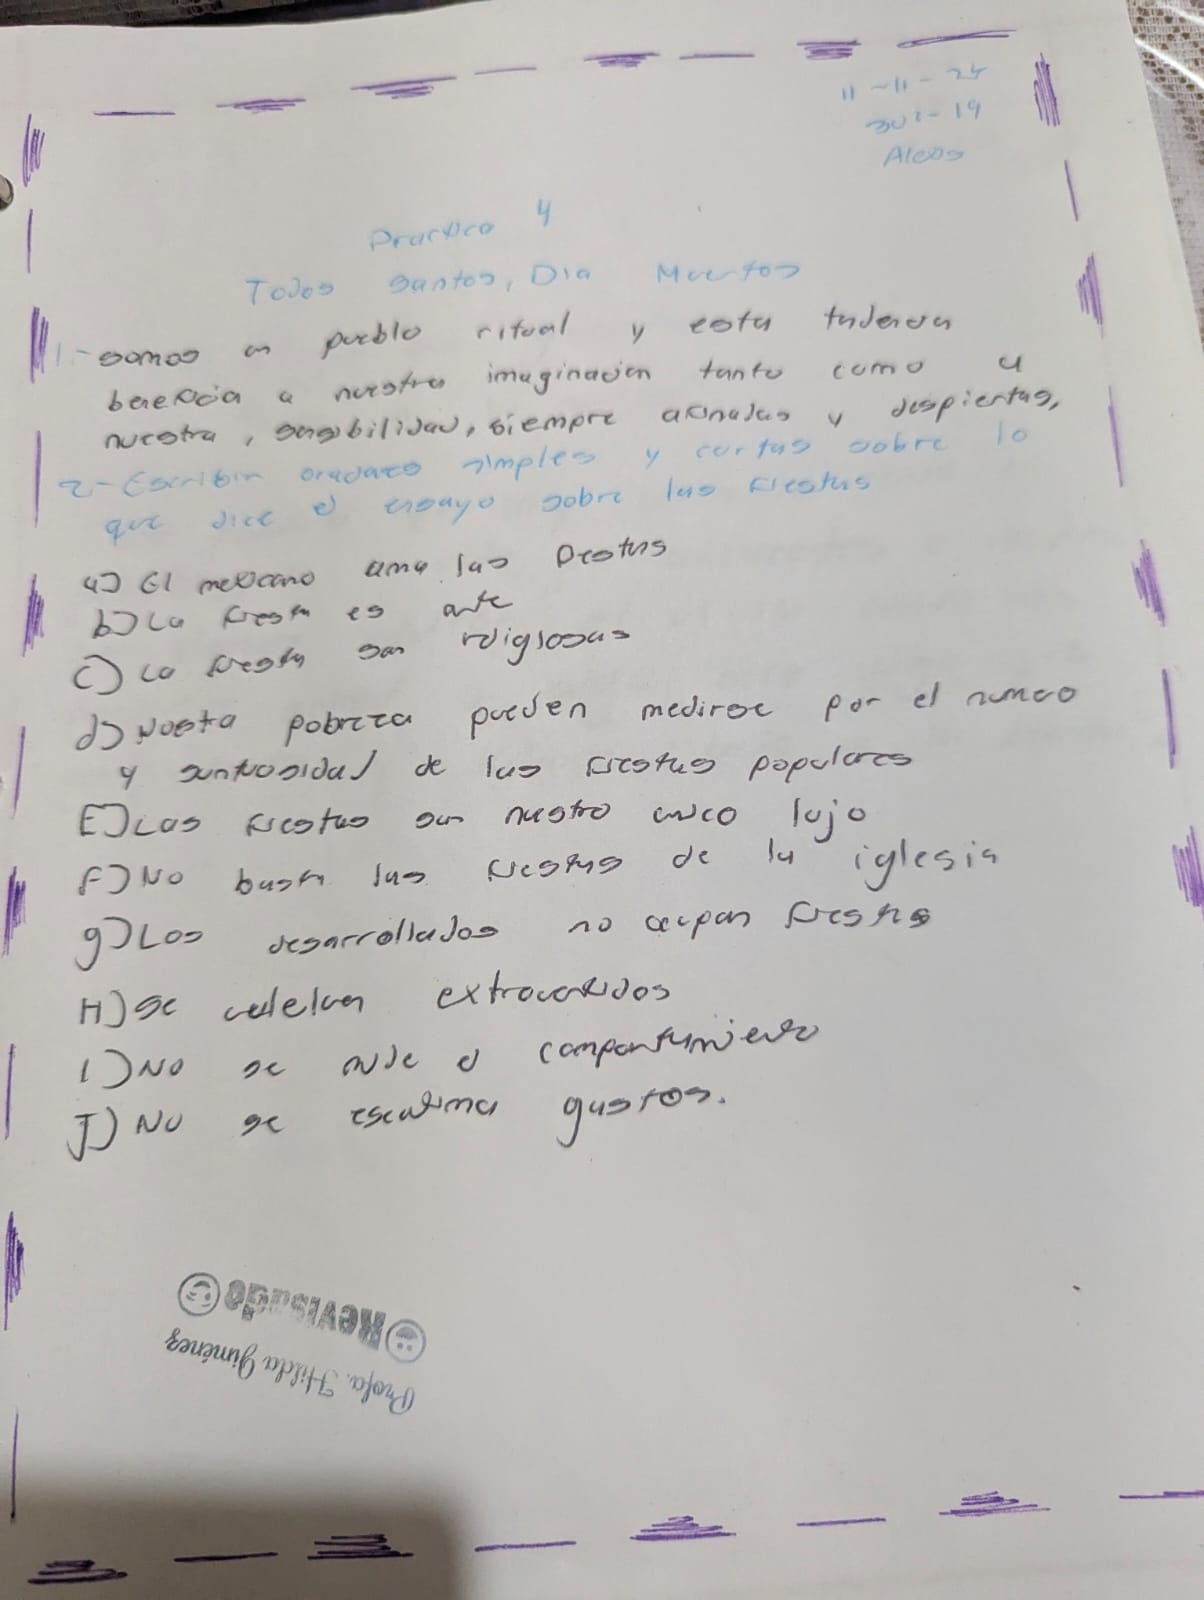 11-11-24
302-19
Practica 4
Todos Santos, Dia Muertos
1.- somos un pueblo ritual y esta tendencia
beneficia a nuestra imaginacion tanto como a
nuestra, sensibilidad, siempre afinadas y despiertas,
2- Escribir oraciones simples y cortas sobre lo
que dice el ensayo sobre las fiestas
a) El mexicano ama las fiestas
b) La fiesta es arte
c) La fiesta son religiosas
d) Nuestra pobreza pueden medirse por el numero
y suntuosidad de las fiestas populares
E) Las fiestas son nuestro unico lujo
F) No basta las fiestas de la iglesia
g) Los desarrollados no ocupan fiestas
H) Se extrovertidos
I) No se mide el comportamiento
J) No se escatima gastos.
Revisado
Profa. Hilda Giménez